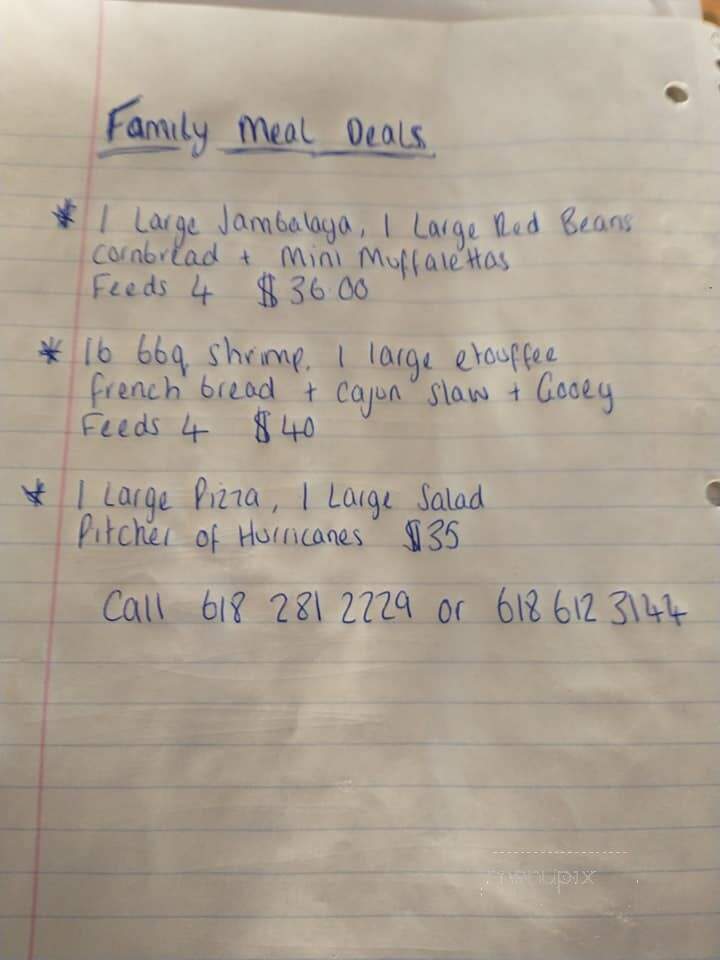 Family Meal Deals
* 1 Large Jambalaya, 1 Large Red Beans
cornbread + Mini Muffalettas
Feeds 4 $36.00
* 1b bbq shrimp, 1 large etouffee
french bread + cajun slaw + Gooey
Feeds 4 $40
* 1 Large Pizza, 1 Large Salad
Pitcher of Hurricanes $35
Call 618 281 2229 or 618 612 3144
menupix